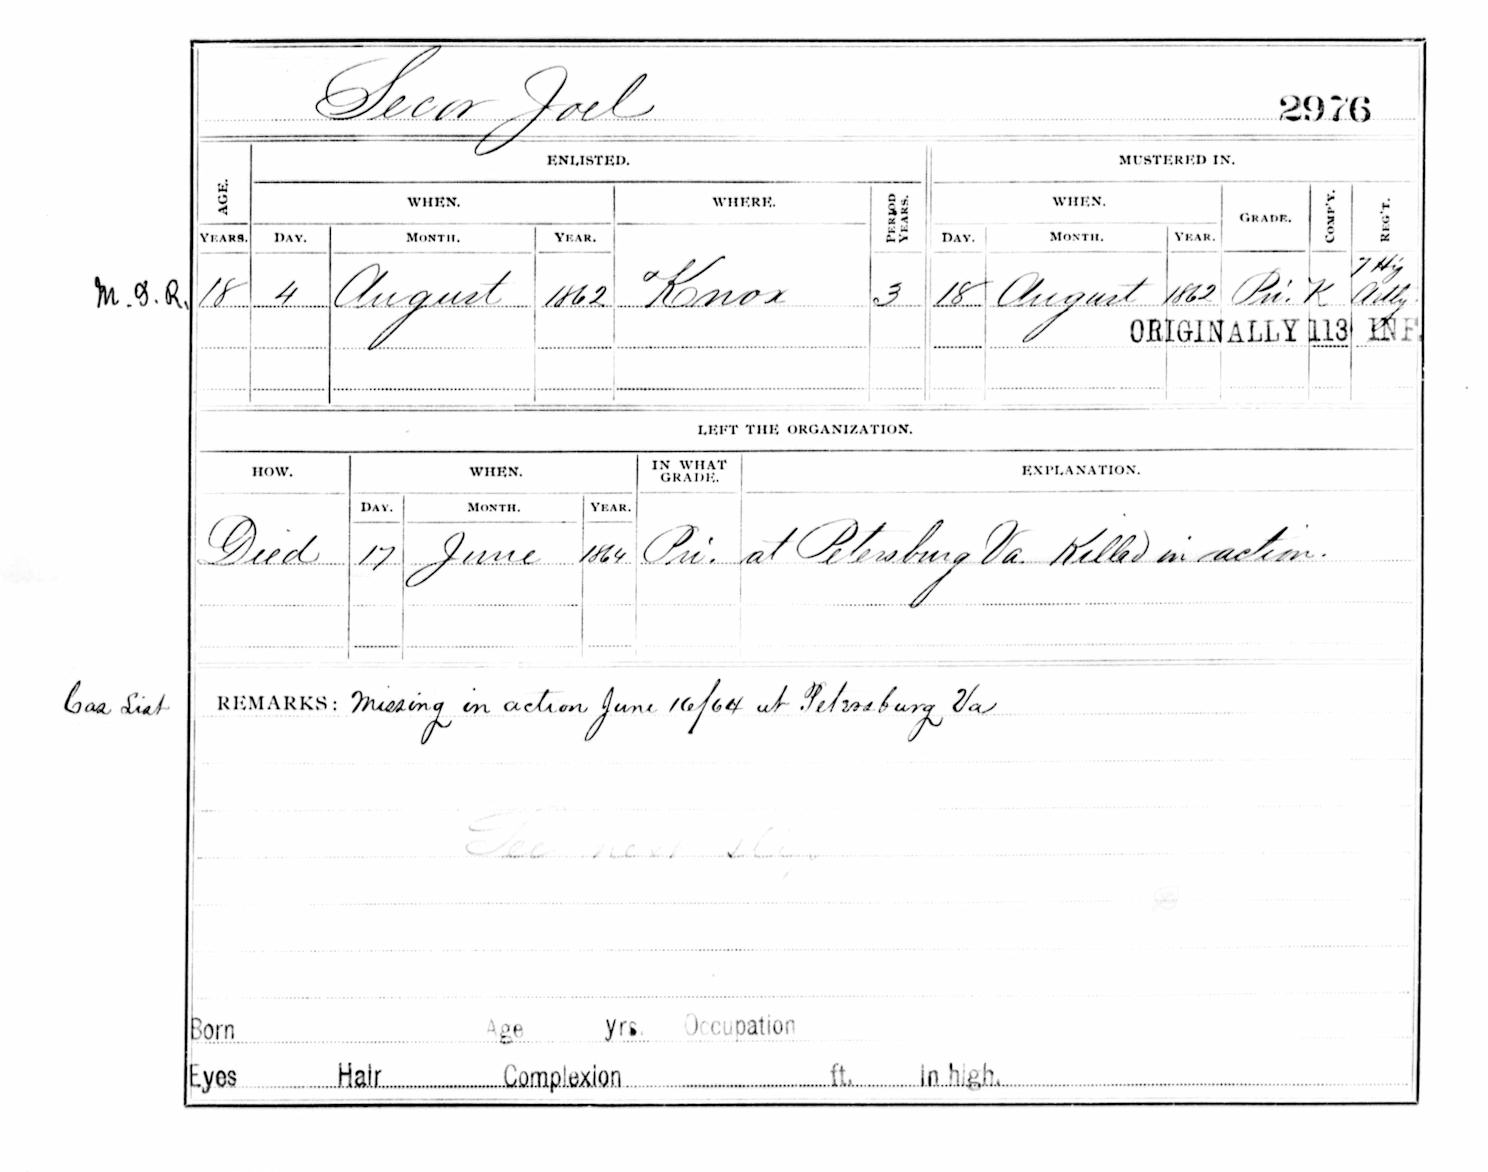 Secor Joel 2976
ENLISTED. MUSTERED IN.
AGE. WHEN. WHERE. PERIOD YEARS. WHEN. GRADE. COMP'Y. REG'T.
YEARS. DAY. MONTH. YEAR. DAY. MONTH. YEAR.
7 Hvy
M.I.R. 18 4 August 1862 Knox 3 18 August 1862 Pri. K Artly.
ORIGINALLY 113 INF.
LEFT THE ORGANIZATION.
HOW. WHEN. IN WHAT GRADE. EXPLANATION.
DAY. MONTH. YEAR.
Died 17 June 1864 Pri. at Petersburg Va. Killed in action.
Cas List REMARKS: Missing in action June 16/64 at Petersburg Va
See next slip
Born Age yrs. Occupation
Eyes Hair Complexion ft. in high.